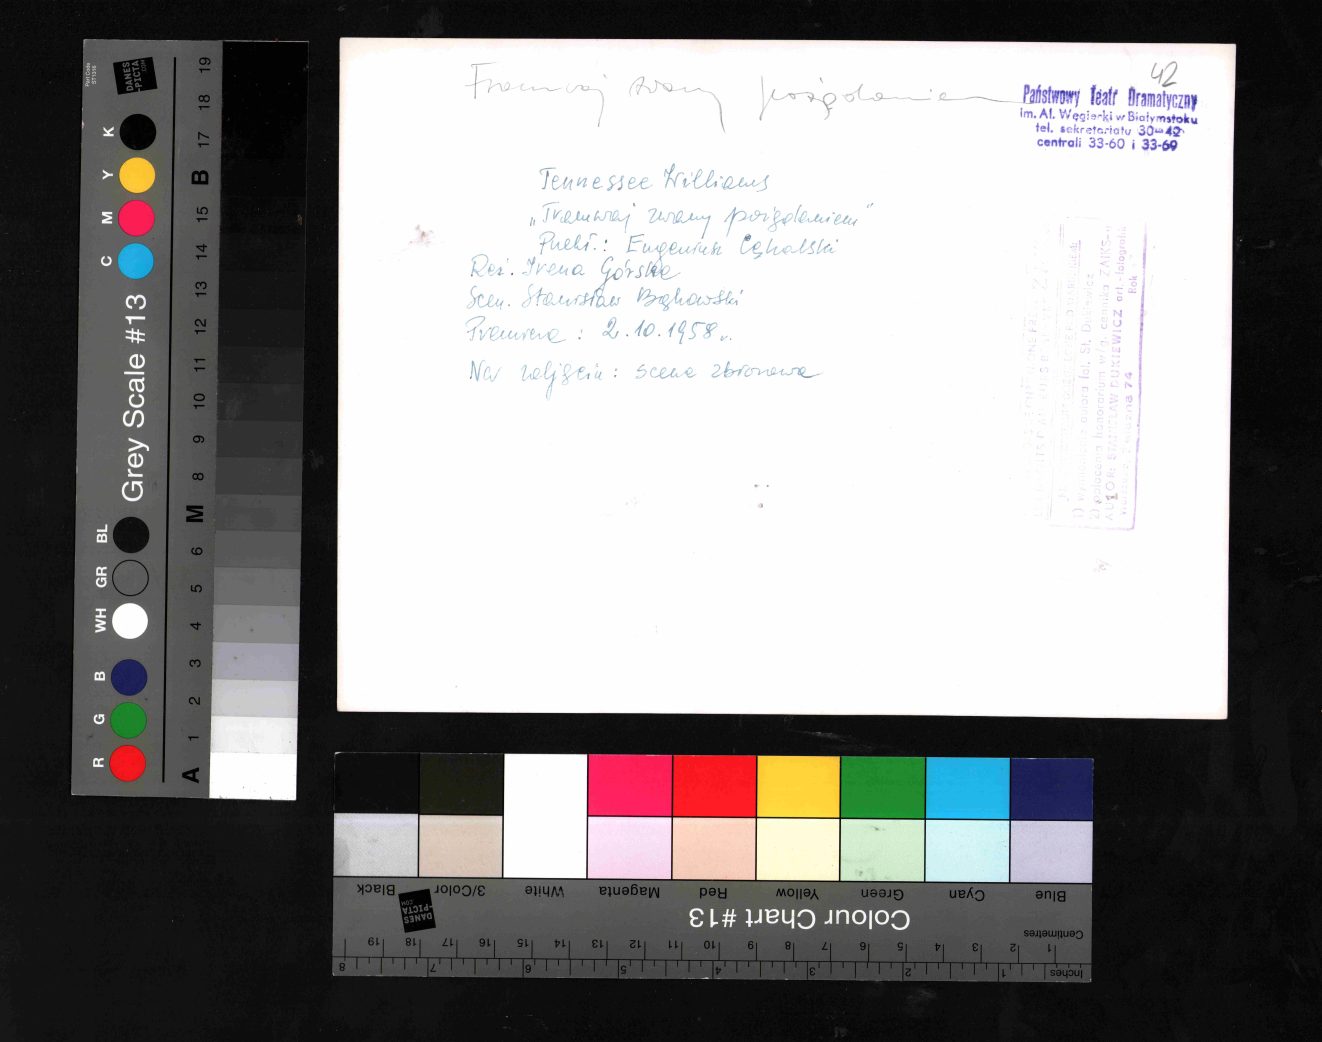 Tramwaj zwany pożądaniem
42
Państwowy Teatr Dramatyczny
im. Al. Węgierki w Białymstoku
tel. sekretariatu 30-42
centrali 33-60 i 33-69
Tennessee Williams
„Tramwaj zwany pożądaniem"
Przekł.: Eugeniusz Cękalski
Reż. Irena Górska
Scen. Stanisław Bąkowski
Premiera: 2.10.1958 r.
Na zdjęciu: scena zbiorowa
1) wymienienia autora fot. St. Dukiewicz
2) płacenia honorarium w/g cennika ZAIKS-u
AUTOR: STANISŁAW DUKIEWICZ art.-fotografik
74 Rok
Part Code
ST1316
DANES
-PICTA
.COM
Grey Scale #13
K Y M C
BL GR WH
B G R
A 1 2 3 4 5 6 M 8 9 10 11 12 13 14 15 B 17 18 19
Black 3/Color White Magenta Red Yellow Green Cyan Blue
DANES
-PICTA
.COM
Colour Chart #13
Centimetres
1 2 3 4 5 6 7 8 9 10 11 12 13 14 15 16 17 18 19
Inches 1 2 3 4 5 6 7 8